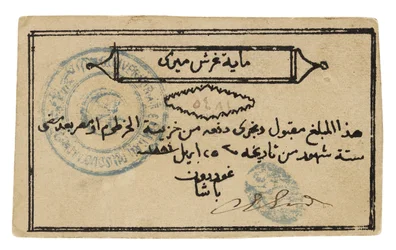 ماية غرش ميرى
٥٤٨١
هذا المبلغ مقبول ويجرى دفعه من خزينة الخرطوم او مصر بعد مضى
ستة شهور من تاريخه ٢٥ ابريل ١٨٨٤
غوردون
باشا